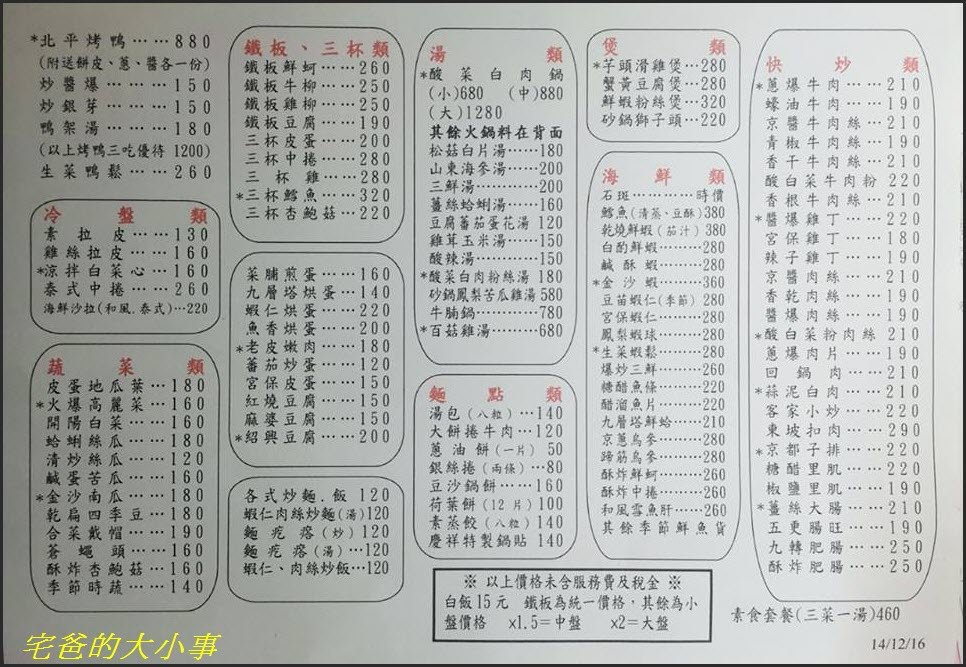 *北平烤鴨……880
(附送餅皮、蔥、醬各一份)
炒醬爆……150
炒銀芽……150
鴨架湯……180
(以上烤鴨三吃優待 1200)
生菜鴨鬆……260
冷盤類
素拉皮……130
雞絲拉皮……160
*涼拌白菜心…160
泰式中捲……260
海鮮沙拉(和風.泰式)…220
蔬菜類
皮蛋地瓜葉…180
*火爆高麗菜…160
開陽白菜……160
蛤蜊絲瓜……180
清炒絲瓜……120
鹹蛋苦瓜……160
*金沙南瓜……180
乾扁四季豆…180
合菜戴帽……190
蒼蠅頭……160
酥炸杏鮑菇…160
季節時蔬……140
鐵板、三杯類
鐵板鮮蚵……260
鐵板牛柳……250
鐵板雞柳……250
鐵板豆腐……190
三杯皮蛋……200
三杯中捲……280
三杯雞……280
*三杯鱈魚……320
三杯杏鮑菇…220
菜脯煎蛋……160
九層塔烘蛋…140
蝦仁烘蛋……220
魚香烘蛋……200
*老皮嫩肉……180
蕃茄炒蛋……120
宮保皮蛋……150
紅燒豆腐……150
麻婆豆腐……150
*紹興豆腐……200
各式炒麵.飯 120
蝦仁肉絲炒麵(湯)120
麵疙瘩(炒)…120
麵疙瘩(湯)…120
蝦仁、肉絲炒飯…120
湯類
*酸菜白肉鍋
(小)680 (中)880
(大)1280
其餘火鍋料在背面
松菇白片湯……180
山東海參湯……200
三鮮湯……200
薑絲蛤蜊湯……160
豆腐蕃茄蛋花湯 120
雞茸玉米湯……150
酸辣湯……150
*酸菜白肉粉絲湯 180
砂鍋鳳梨苦瓜雞湯 580
牛腩鍋……780
*百菇雞湯……680
麵點類
湯包(八粒)…140
大餅捲牛肉…120
蔥油餅(一片) 50
銀絲捲(兩條)…80
豆沙鍋餅……160
荷葉餅(12片)100
素蒸餃(八粒)140
慶祥特製鍋貼 140
煲類
*芋頭滑雞煲…280
蟹黃豆腐煲…280
鮮蝦粉絲煲…320
砂鍋獅子頭…220
海鮮類
石斑……時價
鱈魚(清蒸、豆酥)380
乾燒鮮蝦(茄汁)380
白酌鮮蝦……280
鹹酥蝦……280
*金沙蝦……360
豆苗蝦仁(季節)280
宮保蝦仁……280
鳳梨蝦球……280
*生菜蝦鬆……280
爆炒三鮮……260
糖醋魚條……220
醋溜魚片……220
九層塔鮮蛤……210
京蔥烏參……280
蹄筋烏參……280
酥炸鮮蚵……260
酥炸中捲……260
和風雪魚肝……260
其餘季節鮮魚貨
快炒類
*蔥爆牛肉……210
蠔油牛肉……190
京醬牛肉絲…210
青椒牛肉絲…190
香干牛肉絲…210
酸白菜牛肉粉 220
香根牛肉絲…210
*醬爆雞丁……220
宮保雞丁……180
辣子雞丁……190
京醬肉絲……210
香乾肉絲……190
醬爆肉絲……190
*酸白菜粉肉絲 210
蔥爆肉片……190
回鍋肉……210
*蒜泥白肉……210
客家小炒……220
東坡扣肉……290
*京都子排……220
糖醋里肌……220
椒鹽里肌……190
*薑絲大腸……210
五更腸旺……190
九轉肥腸……250
酥炸肥腸……250
※以上價格未含服務費及稅金※
白飯15元 鐵板為統一價格,其餘為小
盤價格 x1.5=中盤 x2=大盤
素食套餐(三菜一湯)460
14/12/16
宅爸的大小事